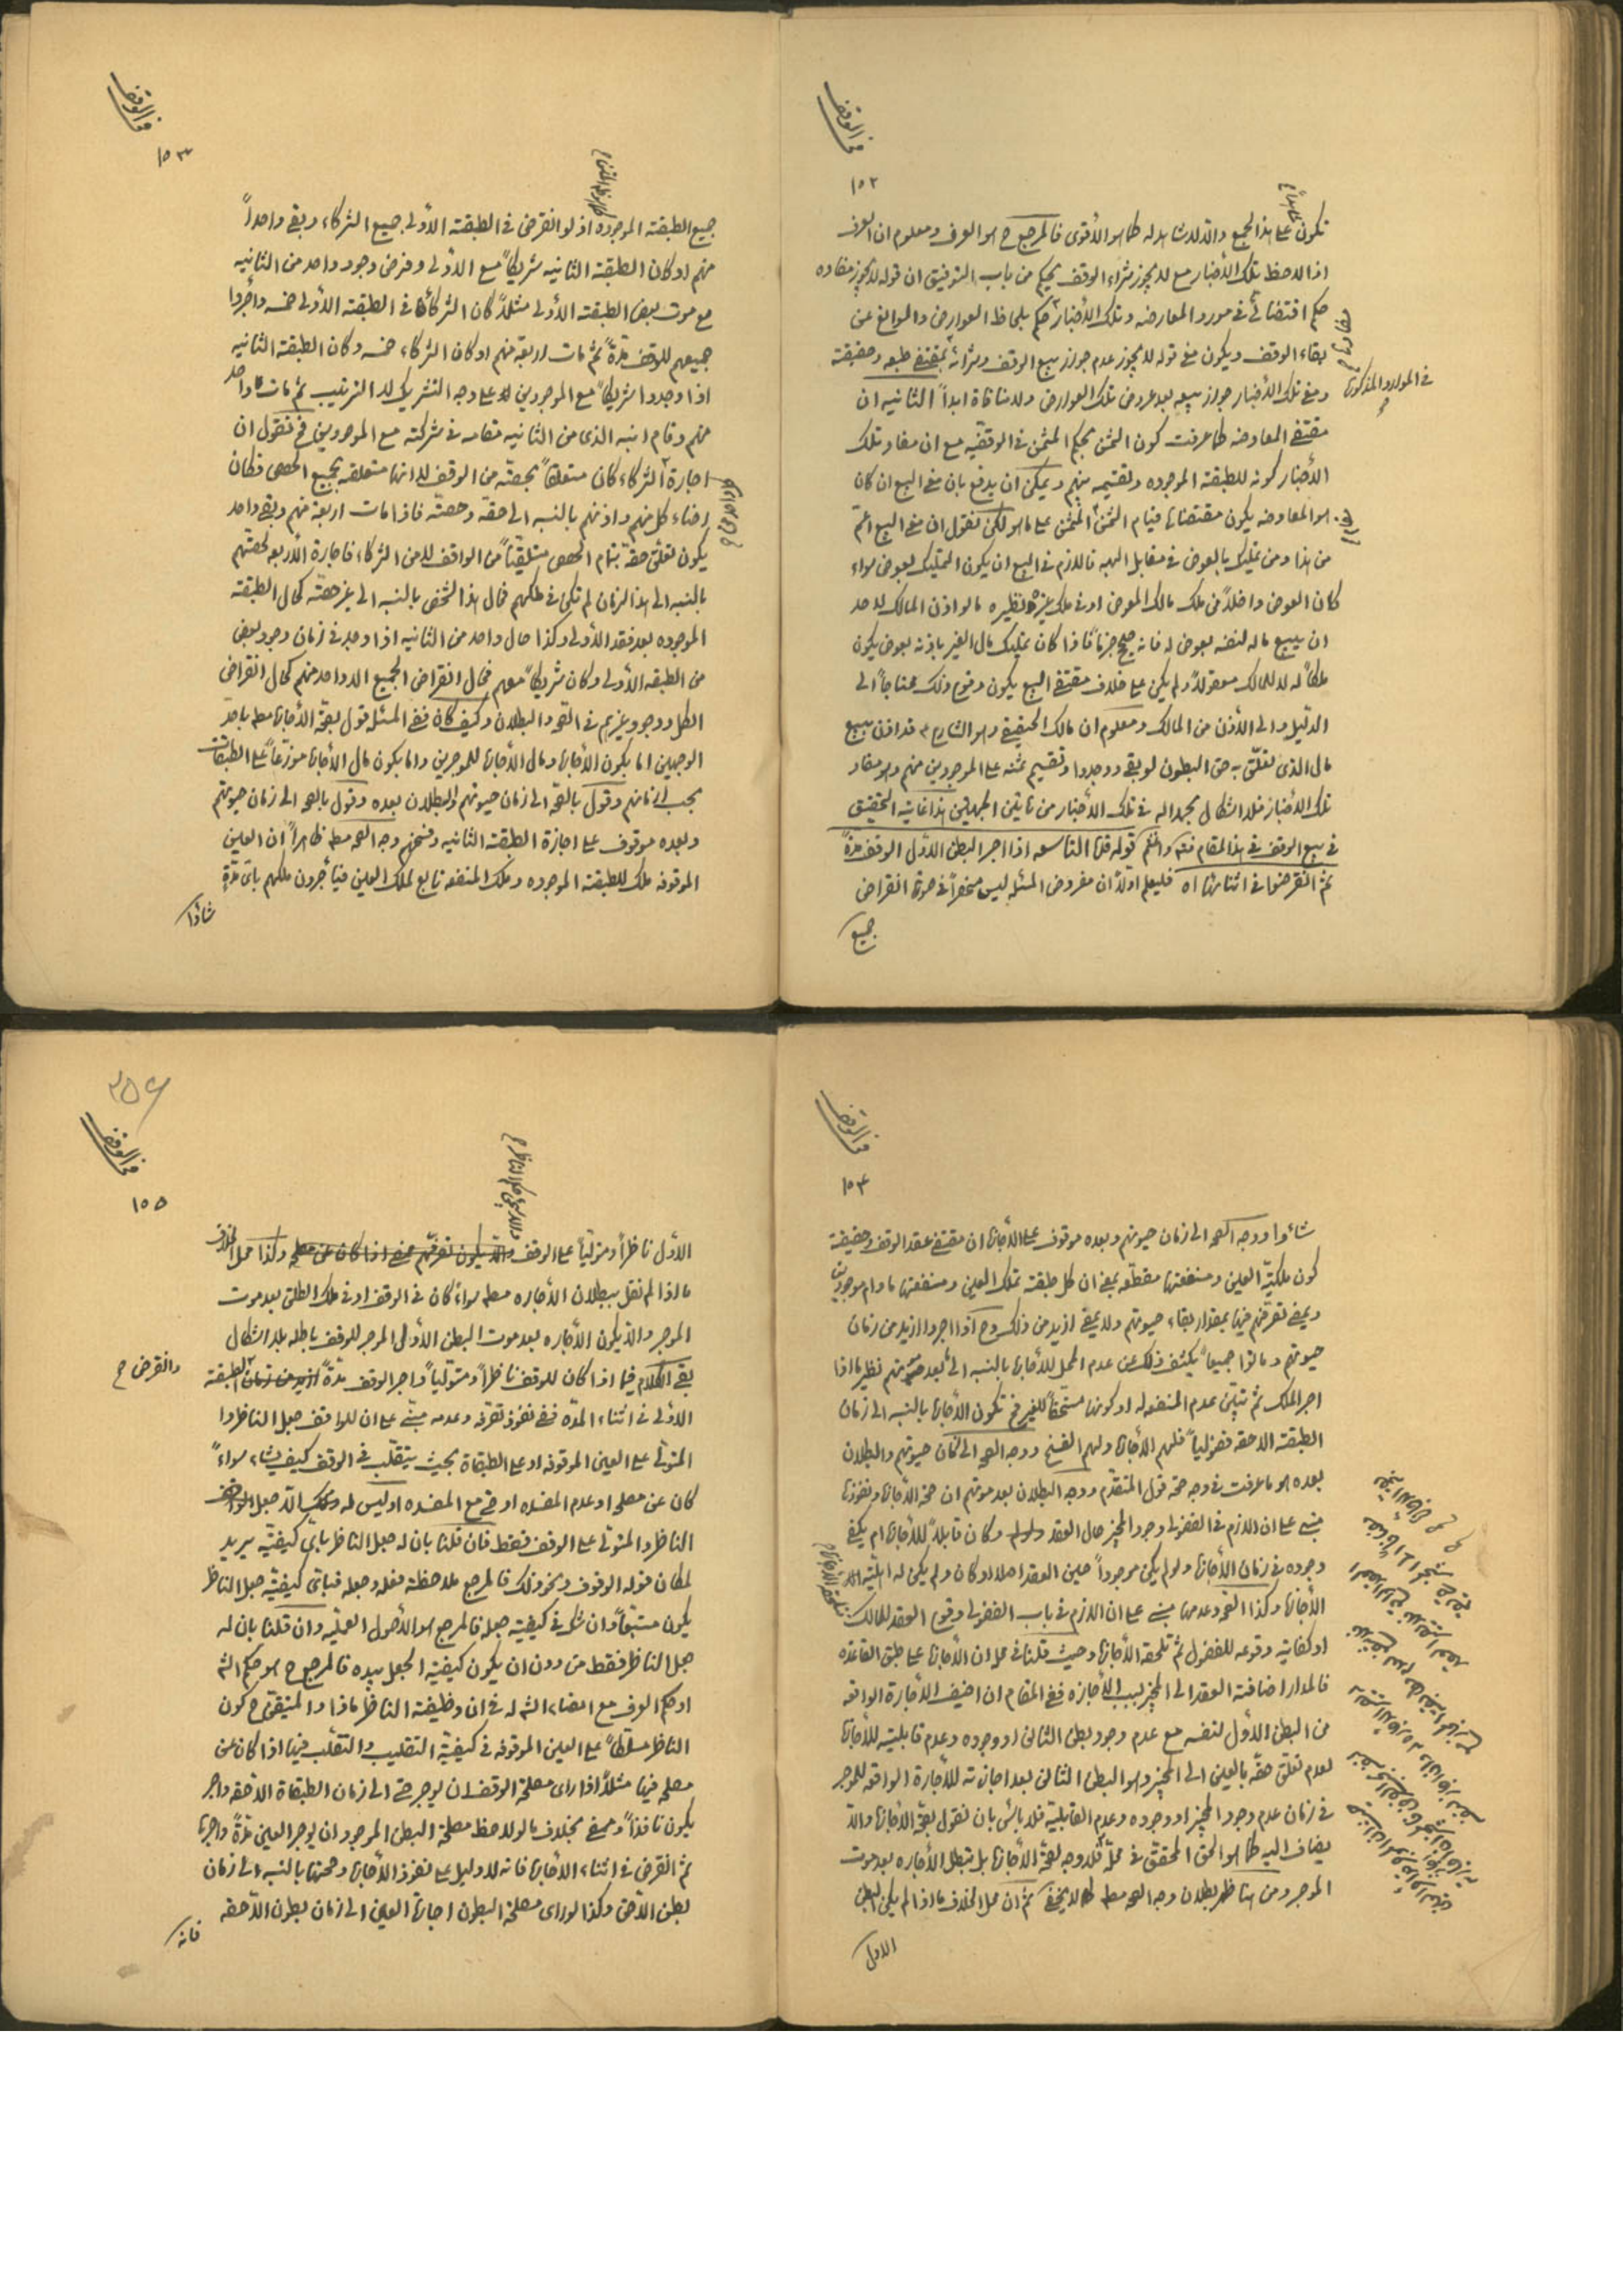 في الوقف
١٥٢
تكون على هذا الجمع والا لا شاهد له كما هو الأقوى فالمرجع ح هو العرف ومعلوم ان العرف
اذا لاحظ تلك الأخبار مع لا يجوز شراء الوقف يحكم من باب التوفيق ان قوله لا يجوز مفاده
حكم اقتضائي في مورد المعارضه وتلك الأخبار حكم بلحاظ العوارض والموانع عن
بقاء الوقف ويكون معنى قوله لا يجوز عدم جواز بيع الوقف وشرائه بمقتضى طبعه وحقيقته
في الموارد المذكورة
ومعنى تلك الأخبار جواز بيعه بعد عروض تلك العوارض ولا منافاة ابداً الثانيه ان
مقتضى المعاوضه كما عرفت كون الثمن بحكم المثمن في الوقفيه مع ان مفاد تلك
الأخبار كونه للطبقة الموجوده وتقسيمه بينهم ويمكن ان يدفع بان معنى البيع ان كان
هو المعاوضه يكون مقتضاها قيام الثمن المثمن على ما هو لكن نقول ان معنى البيع اعمّ
من هذا ومن تمليك بالعوض في مقابل الهبه فاللازم في البيع ان يكون التمليك بعوض سواء
كان العوض داخلاً في ملك مالك المعوض او في ملك غيره نظيره ما لو اذن المالك لاحد
ان يبيع ماله لنفسه بعوض له فانه صحيح جزماً فاذا كان تمليك مال الغير باذنه بعوض يكون
ملكاً له لا للمالك معقولاً ولم يكن على خلاف مقتضى البيع يكون وقوع ذلك محتاجاً الى
الدليل والى الأذن من المالك ومعلوم ان مالك الحقيقي وهو الشارع قد اذن ببيع
مال الذي تعلّق به حق البطون لو بقي ووجدوا وتقسيم ثمنه على الموجودين منهم وهو مفاد
تلك الأخبار فلا اشكال بحمد الله في تلك الأخبار من ناحيتين الجهتين هذا غاية التحقيق
في بيع الوقف في هذا المقام فتدبر واغتنم قوله قده التاسعه اذا اجر البطن الاوّل الوقف مدةً
ثمّ انقرضوا في اثنائها اه فليعلم اولاً ان مفروض المسئله ليس منحصراً في صورة انقراض
جميع
في الوقف
١٥٣
جميع الطبقة الموجوده اذ لو انقرض في الطبقة الأولى جميع الشركاء وبقي واحداً
منهم او كان الطبقة الثانيه شريكاً مع الاولى وفرض وجود واحد من الثانيه
مع موت بعض الطبقة الأولى مثلاً كان الشركاء في الطبقة الأولى خمسه وأجروا
جميعهم للوقف مدّةً ثمّ مات اربعة منهم او كان الشركاء خمسه وكان الطبقة الثانيه
اذا وجدوا شريكاً مع الموجودين على وجه التشريك لا الترتيب ثم مات واحد
منهم وقام ابنه الذي من الثانيه مقامه في شركته مع الموجودين فح نقول ان
اجارة الشركاء كان متعلقاً بحصته من الوقف لا انها متعلقه بجميع الحصص فكان
امضاء كل منهم واذنهم بالنسبه الى حقه وحصته فاذا مات اربعة منهم وبقي واحد
يكون تعلق حقه بتمام الحصص متلقيّاً من الواقف لا من الشركاء فاجارة الأربعه لحصتهم
بالنسبه الى هذا الزمان لم تكن في ملكهم فحال هذا الشخص بالنسبه الى غير حصته كحال الطبقة
الموجوده بعد فقد الأولى وكذا حال واحد من الثانيه اذا وجد في زمان وجود بعض
من الطبقه الأولى وكان شريكاً معهم فحال انقراض الجميع الا واحد منهم كحال انقراض
الكل ووجود غيرهم في الصحه والبطلان وكيف كان ففي المسئله قول بصحة الأجارة مط باحد
الوجهين اما بكون الأجارة ومال الأجارة للموجرين واما بكون مال الأجارة موزّعاً على الطبقات
بحسب ازمانهم وقول بالصحه الى زمان حيوتهم والبطلان بعده وقول بالصحه الى زمان حيوتهم
وبعده موقوف على اجازة الطبقة الثانيه وفسخهم وجه الصحه مط ظاهراً ان العين
الموقوفه ملك للطبقة الموجوده وملك المنفعه تابع لملك العين فيأجرون ملكهم باى مدّةٍ
شاؤا
في الوقف
١٥٤
شاؤا ووجه الصحه الى زمان حيوتهم وبعده موقوف على الأجازة ان مقتضى عقد الوقف وحقيقته
كون ملكيّة العين ومنفعتها مقطّعه بمعنى ان كل طبقة تملك العين ومنفعتها ما دام موجودين
ويمضى تصرّفهم فيها بمقدار بقاء حيوتهم ولا يمضى ازيد من ذلك وح اذا اجروا ازيد من زمان
حيوتهم وماتوا جميعاً يكشف ذلك عن عدم المحل للأجارة بالنسبه الى بعد موتهم نظير ما اذا
اجر الملك ثمّ تبيّن عدم المنفعه له او كونها مستحقاً للغير فح تكون الأجارة بالنسبه الى زمان
الطبقة اللاحقه فضولياً فلهم الأجازة ولهم الفسخ ووجه الصحه الى زمان حيوتهم والبطلان
بعده هو ما عرفت في وجه صحة قول المتقدّم ووجه البطلان بعد موتهم ان صحة الأجازة ونفوذها
مبنى على ان اللازم في الفضولى وجود المجيز حال العقد وكان قابلاً للأجازة ام يكفى
وجوده في زمان الأجازة ولو لم يكن موجوداً حين العقد اصلا او كان ولم يكن له اهليّة
الأجازة وكذا الصحه وعدمها مبنى على ان اللازم في باب الفضولى وقوع العقد للمالك
او كفاية وقوعه للفضول ثمّ تلحقه الأجازة وحيث قلنا في محله ان الأجازة على طبق القاعده
فالمدار اضافة العقد الى المجيز بسبب الأجازه ففي المقام ان اضيف الأجارة الواقعه
من البطن الأوّل لنفسه مع عدم وجود بطن الثانى او وجوده وعدم قابليته للأجازة
لعدم تعلق حقه بالعين الى المجيز وهو البطن الثانى بعد اجازته للأجارة الواقعه للموجر
في زمان عدم وجود المجيز او وجوده وعدم القابلية فلا بأس بان نقول بصحة الأجارة والّا
يضاف اليه كما هو الحق المحقق في محلّه فلا وجه لصحة الأجارة بل تبطل الأجاره بعد موت
الموجر ومن هنا ظهر بطلان وجه الصحه مط كما لا يخفى ثمّ ان محل الخلاف ما اذا لم يكن البطن
الاول
في الوقف
١٥٥
الأوّل ناظراً ومتولّياً على الوقف وكذا محل الخلاف
ما اذا لم نقل ببطلان الأجاره مط سواءً كان في الوقف او في ملك الطلق بعد موت
الموجر والّا يكون الأجاره بعد موت البطن الأوّل الموجر للوقف باطله بلا اشكال
بقي الكلام فيما اذا كان للوقف ناظراً ومتولّياً واجر الوقف مدّةً الطبقة
وانقرض ح
الأولى في اثناء المدّه ففي نفوذ تصرّفه وعدمه مبنّى على ان للواقف جعل الناظر او
المتولّى على العين الموقوفه او على الطبقاة بحيث يتقلّب في الوقف كيف يشاء سواءً
كان عن مصلحه او عدم المفسده او حتى مع المفسده او ليس له الّا جعل
الناظر والمتولّى على الوقف فقط فان قلنا بان له جعل الناظر باىّ كيفيّه يريد
لمكان قوله الوقوف ونحو ذلك فالمرجع ملاحظة فعله وجعله فباىّ كيفيّة جعل الناظر
يكون متبعاً وان شك في كيفيّة جعله فالمرجع هو الأصول العمليّه وان قلنا بان له
جعل الناظر فقط من دون ان يكون كيفيّة الجعل بيده فالمرجع ح هو حكم الشرع
او حكم العرف مع امضاء الشرع له في ان وظيفة الناظر ماذا والمتيقن ح كون
الناظر مسلّطاً على العين الموقوفه في كيفيّة التقليب والتقلّب فيها اذا كان عن
مصلحه فيها مثلاً اذا راى مصلحة الوقف ان يوجر حتى الى زمان الطبقاة اللاحقه واجر
يكون نافذاً وممضى بخلاف ما لو لاحظ مصلحة البطن الموجود ان يوجر العين مدّةً واجرها
ثمّ انقرض في اثناء الأجارة فانه لا دليل على نفوذ الأجارة وصحتها بالنسبه الى زمان
بطن اللّاحق وكذا لو راى مصلحة البطون اجارة العين الى زمان بطون اللّاحقه
فانه